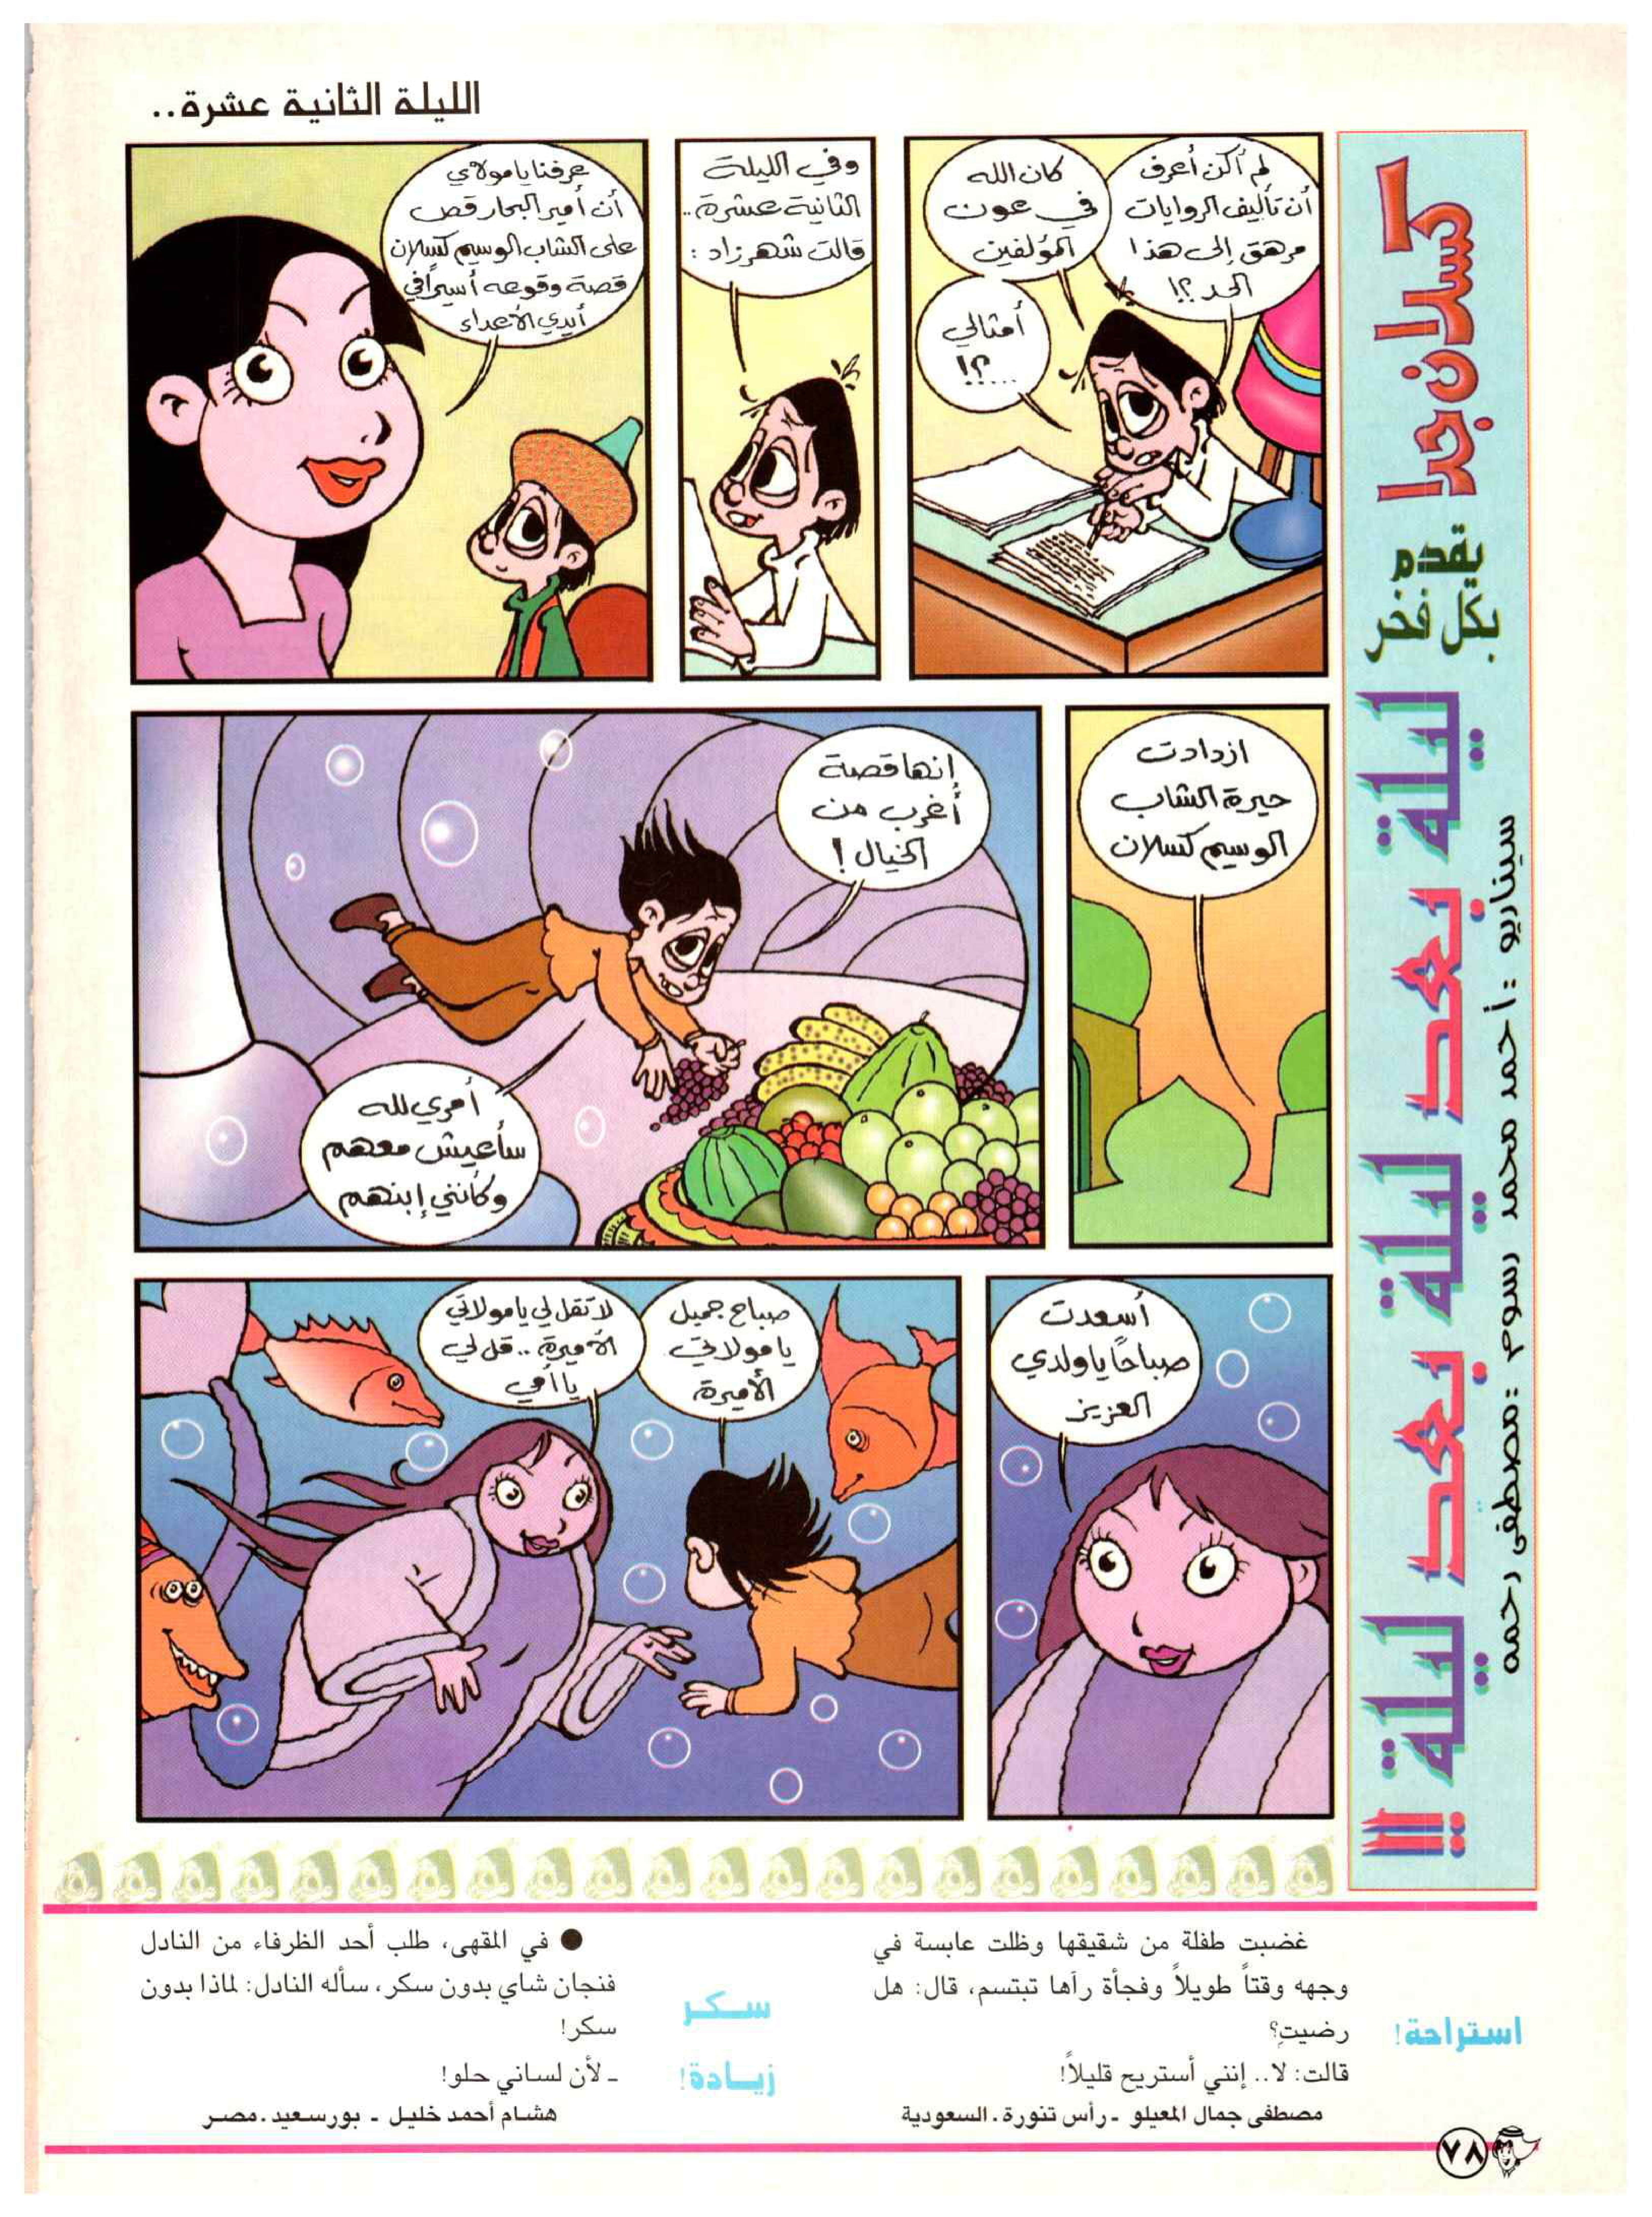 الليلة الثانية عشرة..
كسلان جدا
يقدم
بكل فخر
ليلة بعد ليلة بعد ليلة !!!
سيناريو : أحمد محمد رسوم : مصطفى رحمه
لم أكن أعرف
أن تأليف الروايات
مرهق إلى هذا
الحد ؟!
كان الله
في عون
المؤلفين
أمثالي
....؟!
وفي الليلة
الثانية عشرة..
قالت شهرزاد :
عرفنا يا مولاي
أن أمير البحار قص
على الشاب الوسيم كسلان
قصة وقوعه أسيراً في
أيدي الأعداء
ازدادت
حيرة الشاب
الوسيم كسلان
إنها قصة
أغرب من
الخيال !
أمري لله
سأعيش معهم
وكأنني إبنهم
أسعدت
صباحاً يا ولدي
العزيز
صباح جميل
يا مولاتي
الأميرة
لا تقل لي يا مولاتي
الأميرة .. قل لي
يا أمي
استراحة!
غضبت طفلة من شقيقها وظلت عابسة في
وجهه وقتاً طويلاً وفجأة رآها تبتسم، قال: هل
رضيتِ؟
قالت: لا.. إنني أستريح قليلاً!
مصطفى جمال المعيلو ـ رأس تنورة. السعودية
سـكـر
زيـادة!
● في المقهى، طلب أحد الظرفاء من النادل
فنجان شاي بدون سكر، سأله النادل: لماذا بدون
سكر!
ـ لأن لساني حلو!
هشام أحمد خليل ـ بورسعيد. مصـر
٧٨